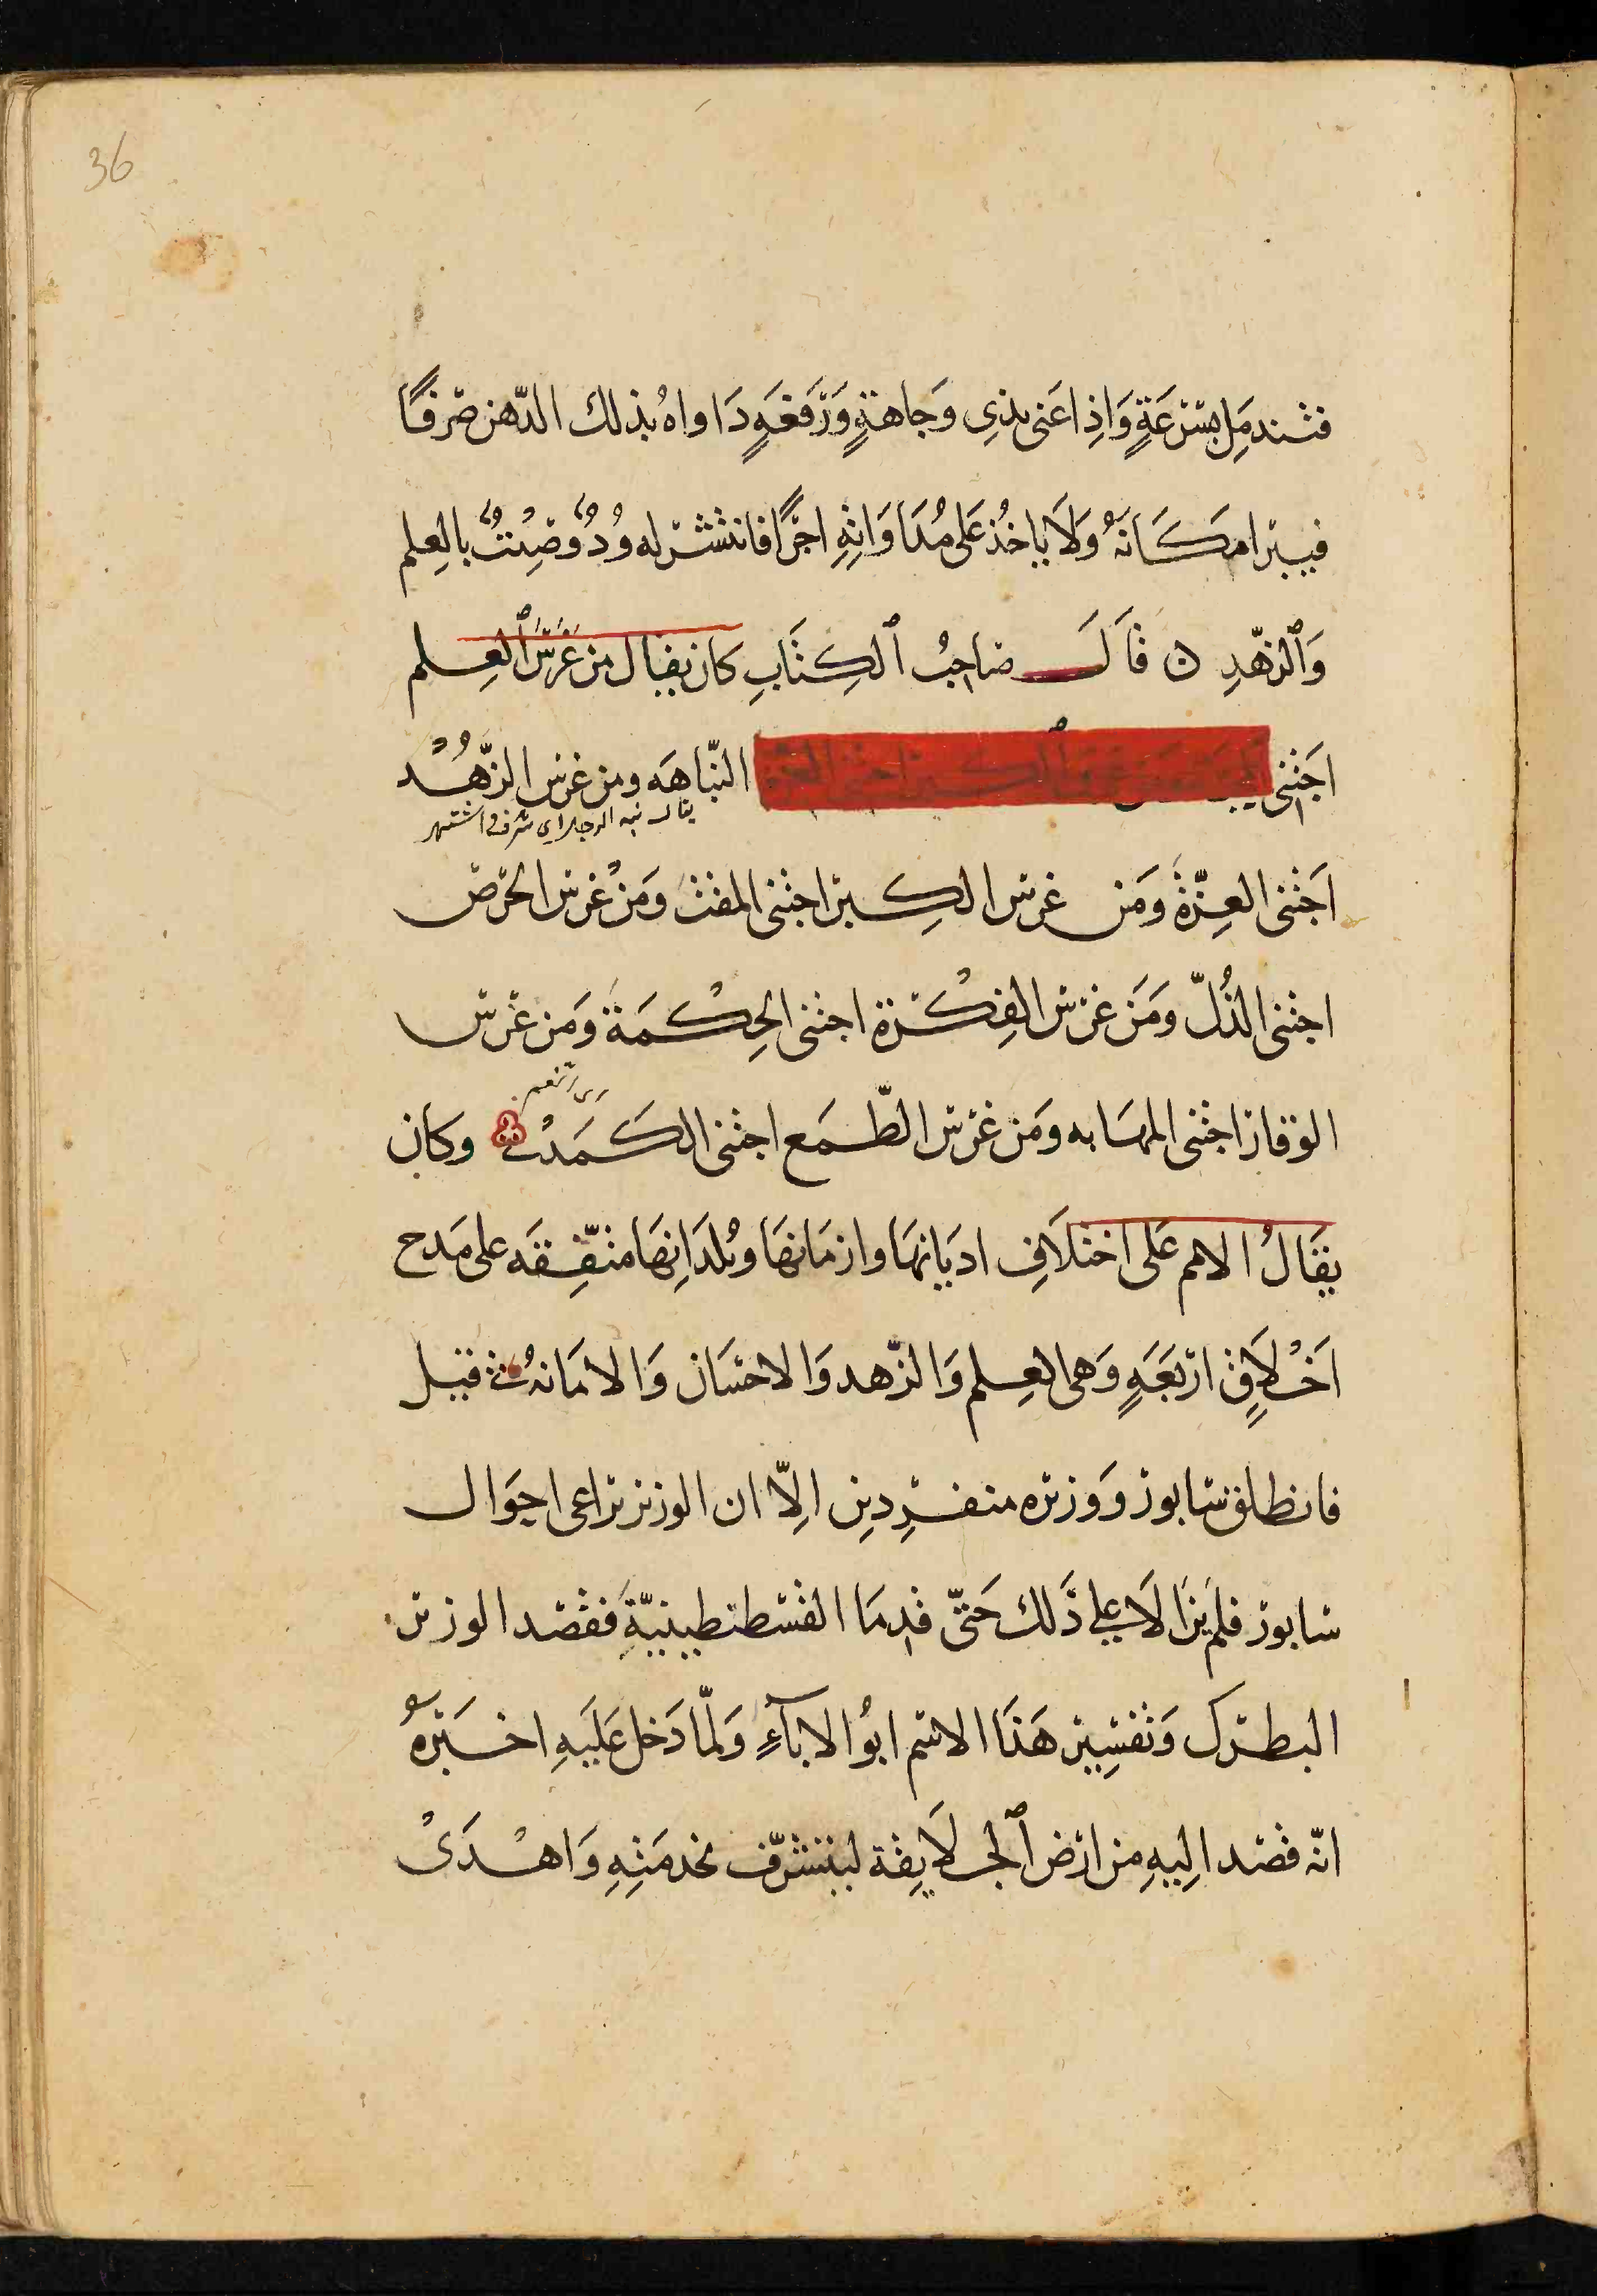 36
فتندمل بسرعة واذا عنى بذي وجاهة ورفعة داواه بذلك الدهن صرفًا
فيبرا مكانه ولا ياخذ على مداواته اجرًا فانتشر له ودٌ وصيتٌ بالعلم
والزهد ن قال صاحب الكتاب كان يقال من غرس العلم
اجتنى النباهه ومن غرس الزهد
يقال نبه الرجل اي شرف واشتهر
اجتنى العزة ومن غرس الكبر اجتنى المقت ومن غرس الحرص
اجتنى الذلّ ومن غرس الفكرة اجتنى الحكمة ومن غرس
الوقار اجتنى المهابه ومن غرس الطمع اجتنى الكمد وكان
يقال الامم على اختلاف اديانها وازمانها وبلدانها متفقه على مدح
اخلاق اربعة وهي العلم والزهد والاحسان والامانه قيل
فانطلق سابور ووزيره منفردين الّا ان الوزير يراعي احوال
سابور فلم يزالا على ذلك حتّى قدما القسطنطينيّة فقصد الوزير
البطرك وتفسير هذا الاسم ابو الاباء ولمّا دخل عليه اخبره
انّه قصد اليه من ارض الجلايقة ليتشرّف بخدمته واهدى